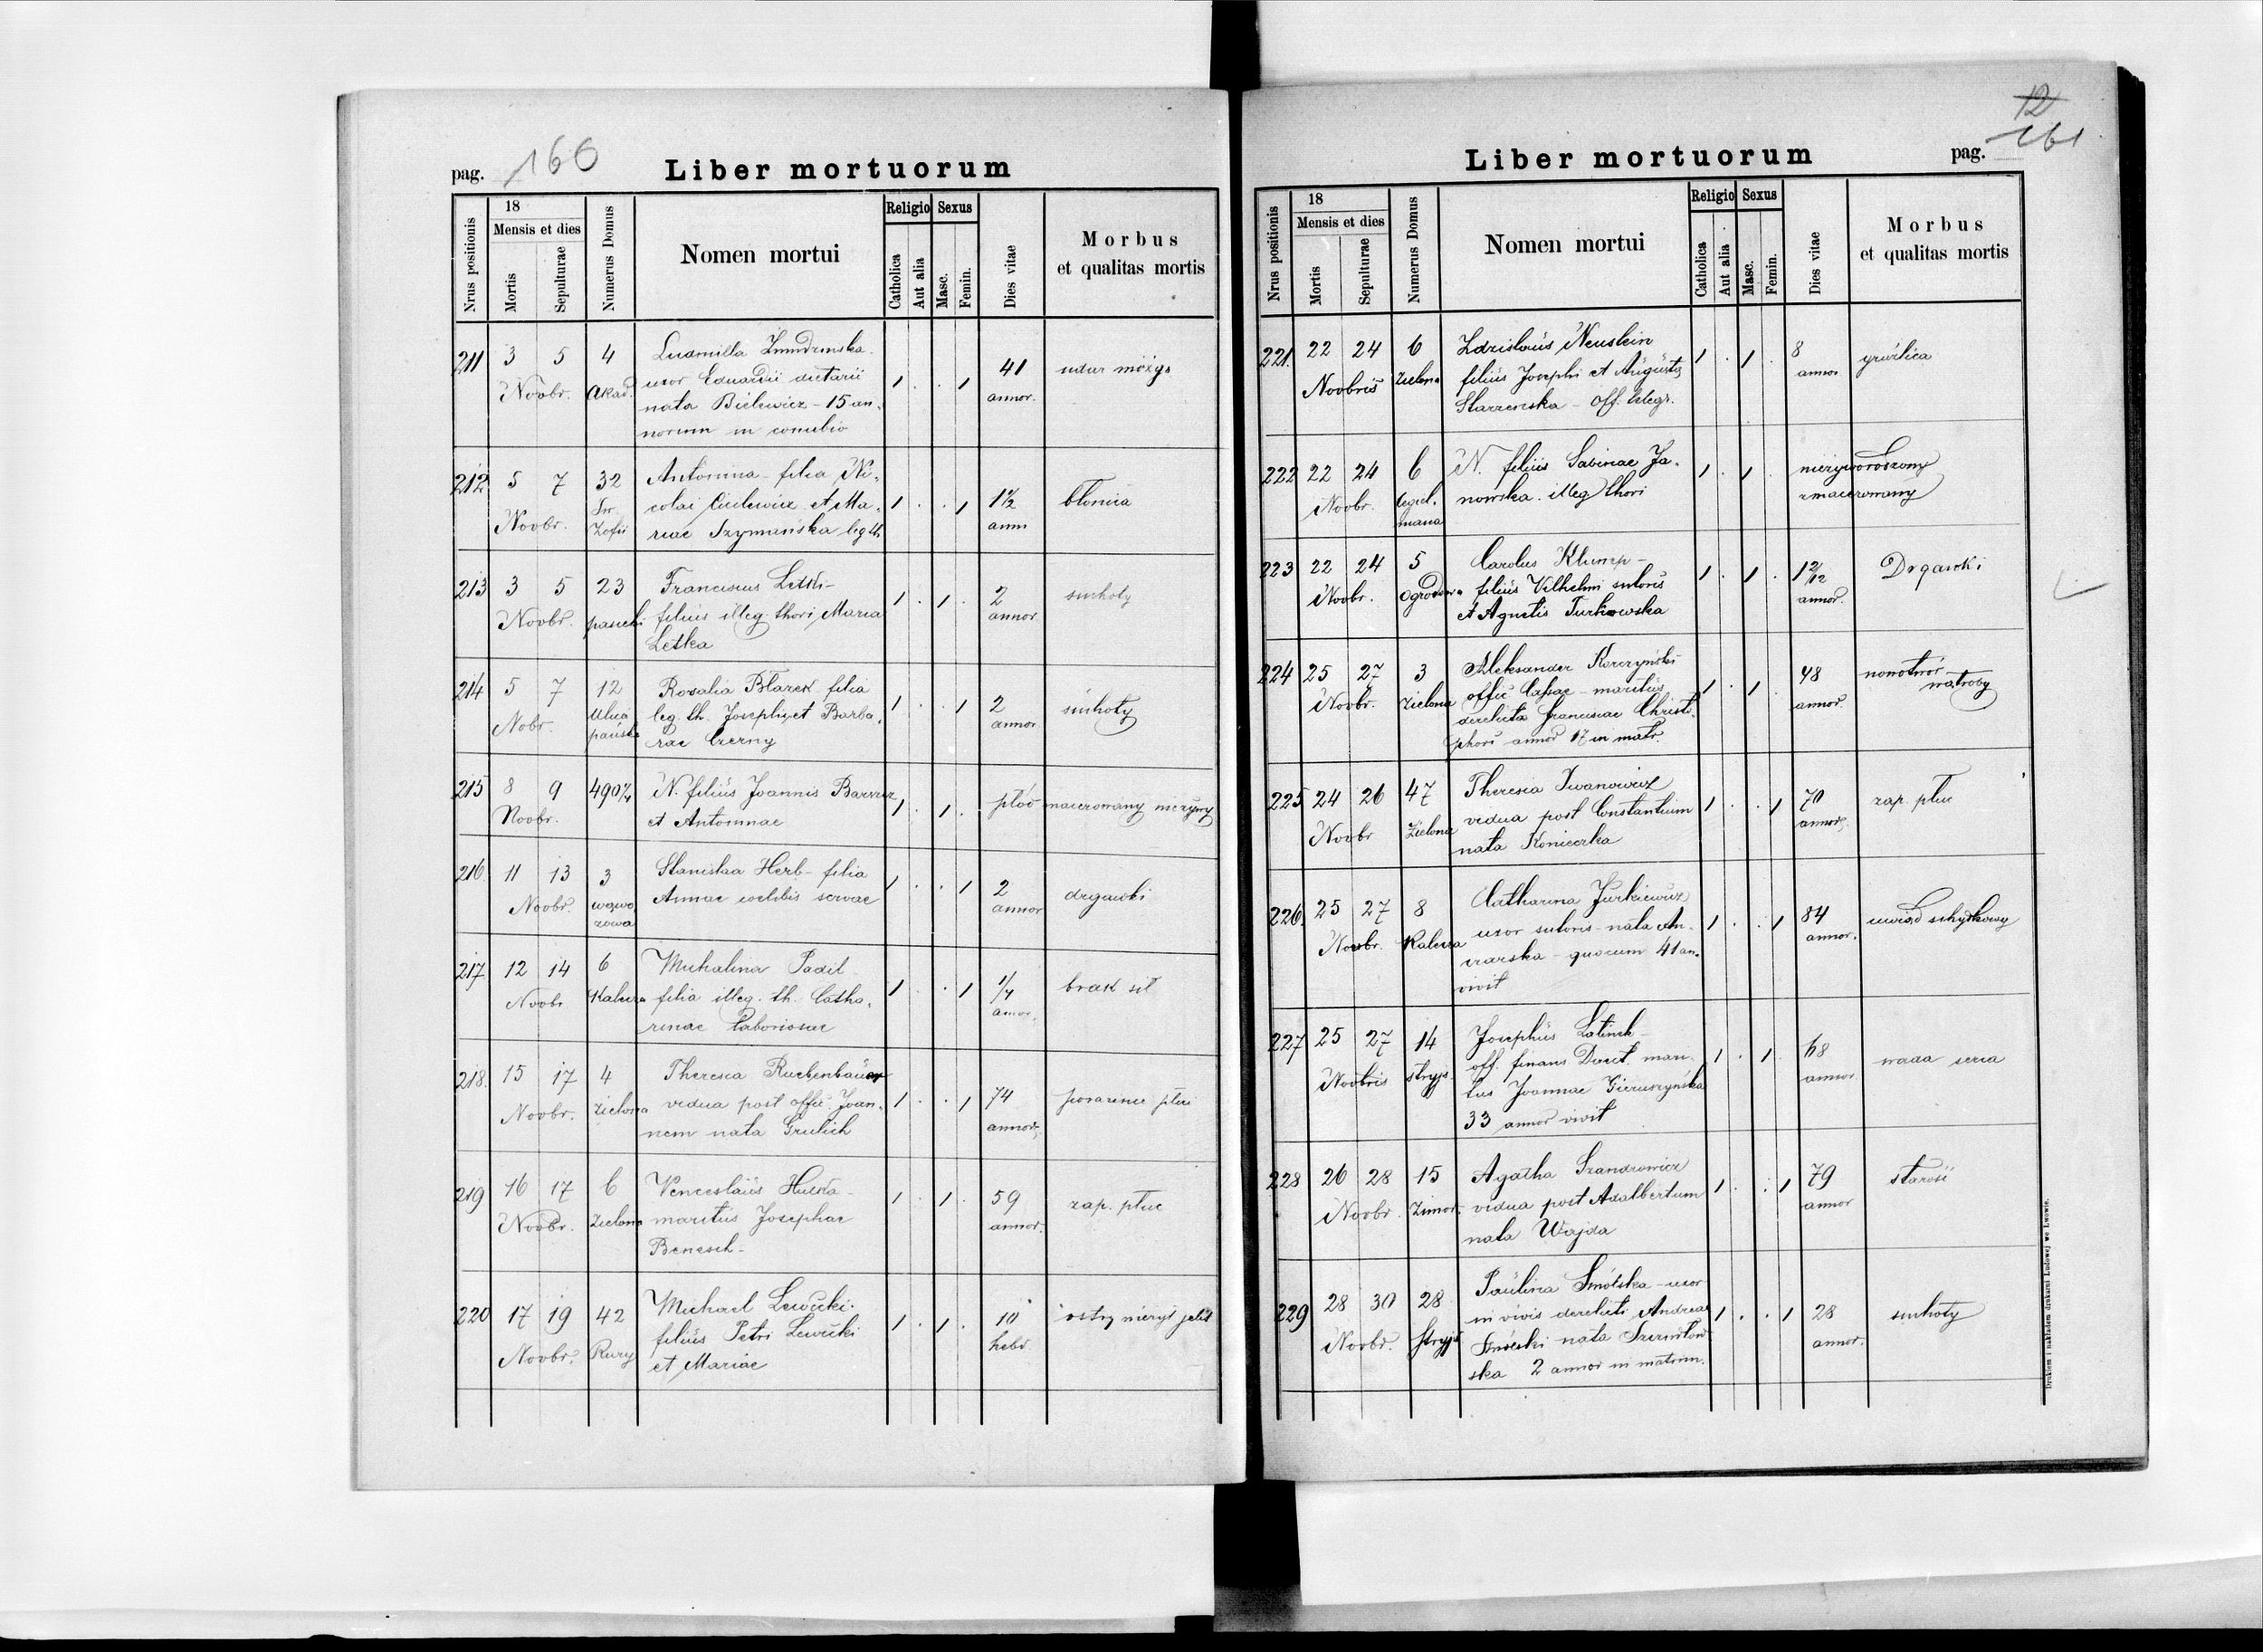 pag. 160
Liber mortuorum
Nrus positionis
18
Mensis et dies
Mortis
Sepulturae
Numerus Domus
Nomen mortui
Religio
Catholica
Aut alia
Sexus
Masc.
Femin.
Dies vitae
Morbus
et qualitas mortis
211 3 5 4 Ludmilla 1 . . 1 41 udar mózgu
Noobr. Akad. uxor Eduardi dietarii annor.
nata Bielewicz - 15 an.
norum in conubio
212 5 7 32 Antonina filia Ni- 1 . . 1 1½ błonica
Noobr. Św. Zofii colai et Ma- anni
riae Szymańska leg th.
213 3 5 23 Franciscus Letki 1 . 1 . 2 suchoty
Noobr. filius illeg. thori Maria annor
Letka
214 5 7 12 Rosalia Błazek filia 1 . . 1 2 suchoty
Nobr. Ulica leg. th. Josephi et Barba- annor
rae Czerny
215 8 9 490¾ N. filius Joannis 1 . 1 . płód macerowany nieżywy
Noobr. et Antoninae
216 11 13 3 Stanislaa Herb - filia 1 . . 1 2 drgawki
Noobr. wąwo Annae coelibis servae annor
zowa
217 12 14 6 Michalina Padil 1 . . 1 1/4 brak sił
Noobr Kalecza filia illeg. th. Catha- annor.
rinae laboriosae
218. 15 17 4 Theresia Ruebenbauer 1 . . 1 74 porażenie płuc
Noobr. Zielona vidua post offic. Joan- annor.
nem nata Grulich
219 16 17 6 Venceslaus 1 . 1 . 59 zap. płuc
Noobr. Zielona maritus Josephae annor.
Benesch -
220 17 19 42 Michael Lewicki. 1 . 1 . 10 ostry nieżyt jelit
Noobr. Rury filius Petri Lewicki hebd
et Mariae
12
161
Liber mortuorum
pag.
Nrus positionis
18
Mensis et dies
Mortis
Sepulturae
Numerus Domus
Nomen mortui
Religio
Catholica
Aut alia
Sexus
Masc.
Femin.
Dies vitae
Morbus
et qualitas mortis
221. 22 24 6 Zdzislaus Neustein 1 . 1 . 8 gruźlica
Noobris Zielona filius Josephi et Augusta annor
Starzewska - Off. telegr.
222 22 24 6 N. filius Sabinae Ja- 1 . 1 . nieżyworoszony
Noobr. nowska. illeg thori zmacerowany
223 22 24 5 Carolus Klump - 1 . 1 . 12/12 Drgawki
Noobr. Ogrodowa filius Vilhelmi sutoris annor.
et Agnetis Turkowska
224 25 27 3 Aleksander Korczyński 1 . 1 . 48 nowotwór
Noobr. Zielona offic Cassae - maritus annor. wątroby
derelicta Franciscae Christo-
phori annor 17 in matr.
225 24 26 47 Theresia Iwanowicz 1 . . 1 70 zap. płuc
Noobr Zielona vidua post Constantium annor.
nata Konieczka
226. 25 27 8 Catharina Jurkiewicz 1 . . 1 84 uwiąd schyłkowy
Noobr. Kalecza uxor sutoris - nata annor.
quocum 41 an.
vivit
227 25 27 14 Josephus Latinek 1 . 1 . 68 wada serca
Noobris Stryjs off. finans Direct. mari- annor
tus Joannae Gieruszyńska
33 annor vivit
228 26 28 15 Agatha Szandrowicz 1 . : 1 79 starość
Noobr. Zimor. vidua post Adalbertum annor
nata Wajda
229 28 30 28 Paulina Smólska - uxor 1 . . 1 28 suchoty
Noobr. Stryjs in vivis derelicti Andreas annor.
Smólski nata
ska 2 annor in matrim.
Drukiem i nakładem drukarni Ludowej we Lwowie.